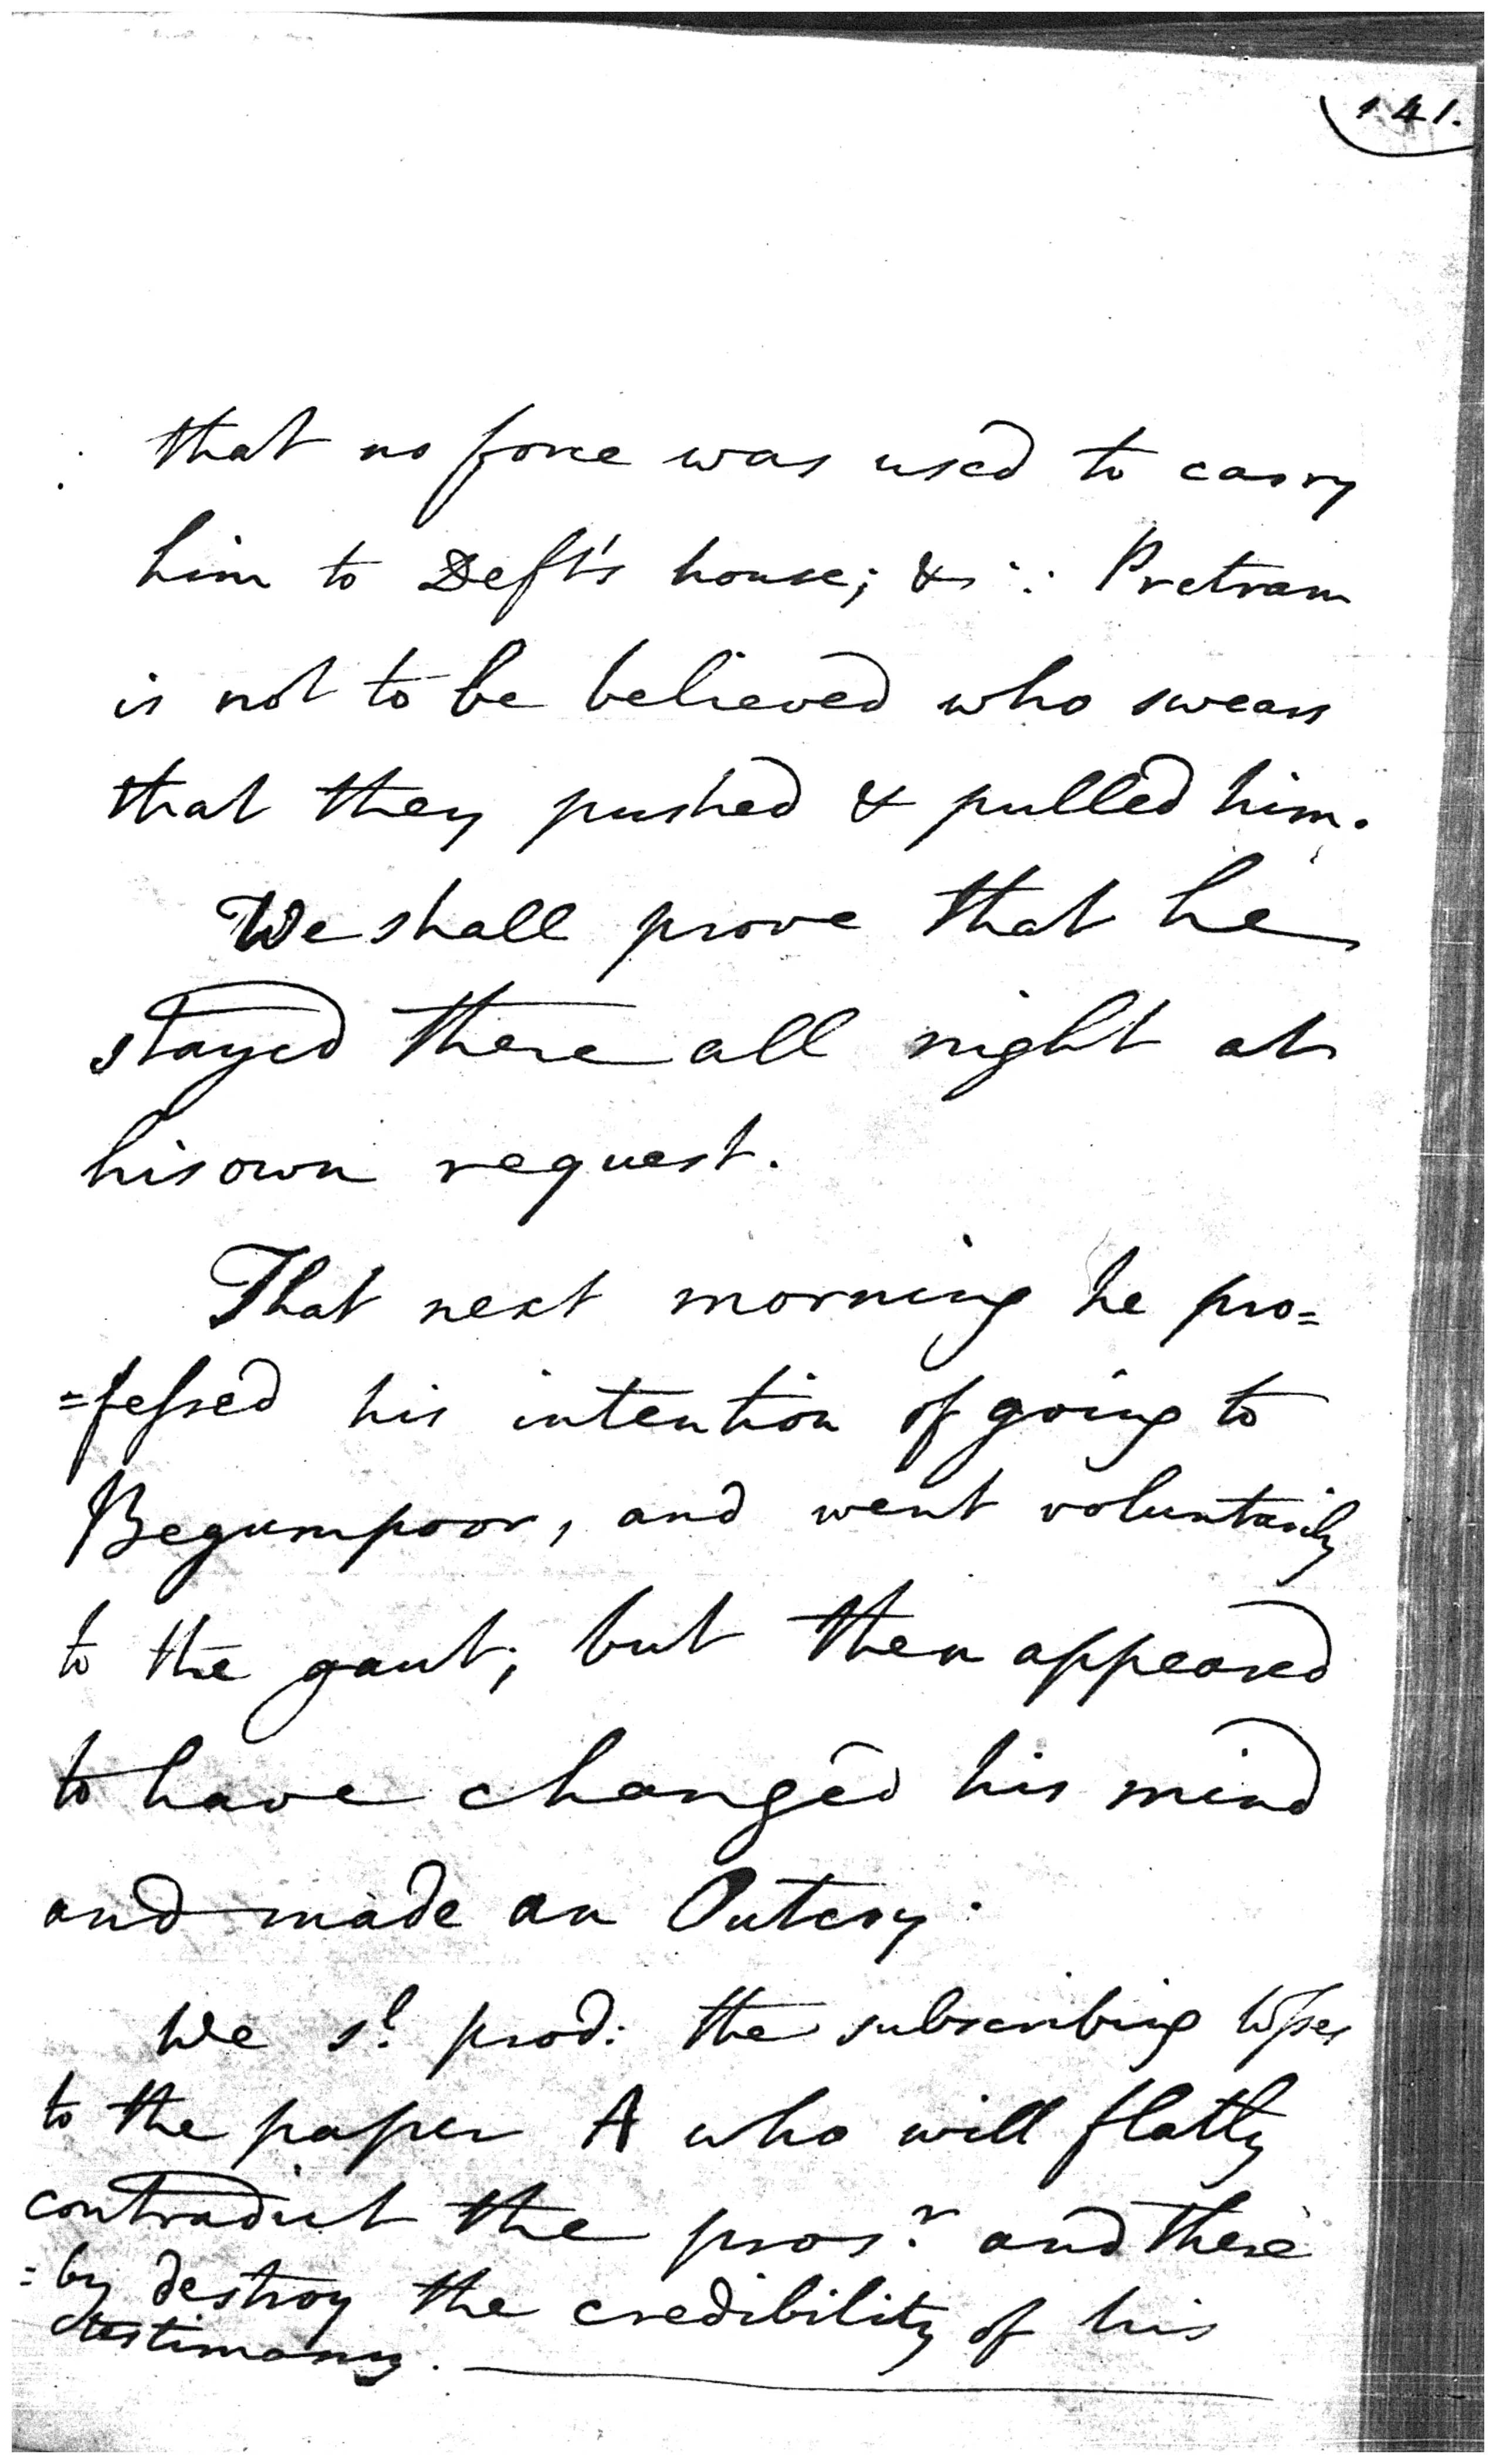 141.
that no force was used to carry
him to Deft's house; & ∵ Pretram
is not to be believed who swears
that they pushed & pulled him.
We shall prove that he
stayed there all night at
his own request.
That next morning he pro=
=fessed his intention of going to
Begumpoor, and went voluntarily
to the gaut; but then appeared
to have changed his mind
and made an Outcry.
We sl. prod: the subscribing
to the paper A who will flatly
contradict the prosr. and there
=by destroy the credibility of his
testimony.